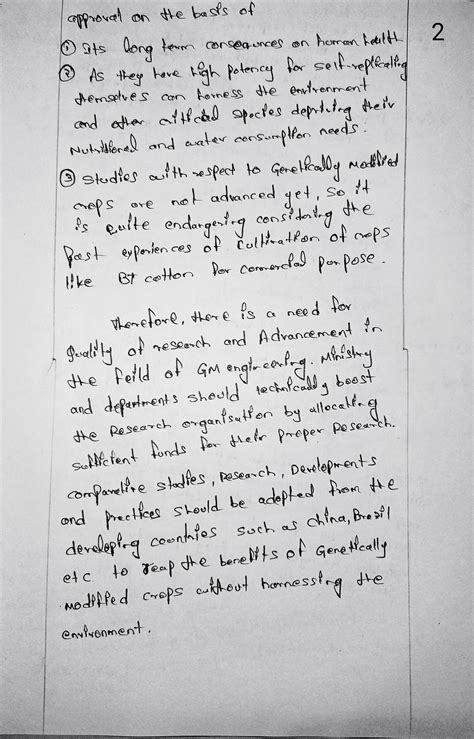 approval on the basis of
2
① Its long term consequnces on human health
② As they have high potency for self-replicating
themselves can harness the environment
and other critical species depriving their
Nutritional and water consumption needs.
③ Studies with respect to Genetically Modified
crops are not advanced yet, so it
is quite endangering considering the
past experiences of cultivation of crops
like BT cotton for comercial purpose.
Therefore, there is a need for
quality of research and Advancement in
the feild of GM engineering. Ministry
and departments should technically boost
the Research organisation by allocating
sufficient funds for their proper Research.
comparative studies, Research, Developments
and practices should be adopted from the
developing countries such as China, Brazil
etc to reap the benefits of Genetically
modified crops without harnessing the
environment.